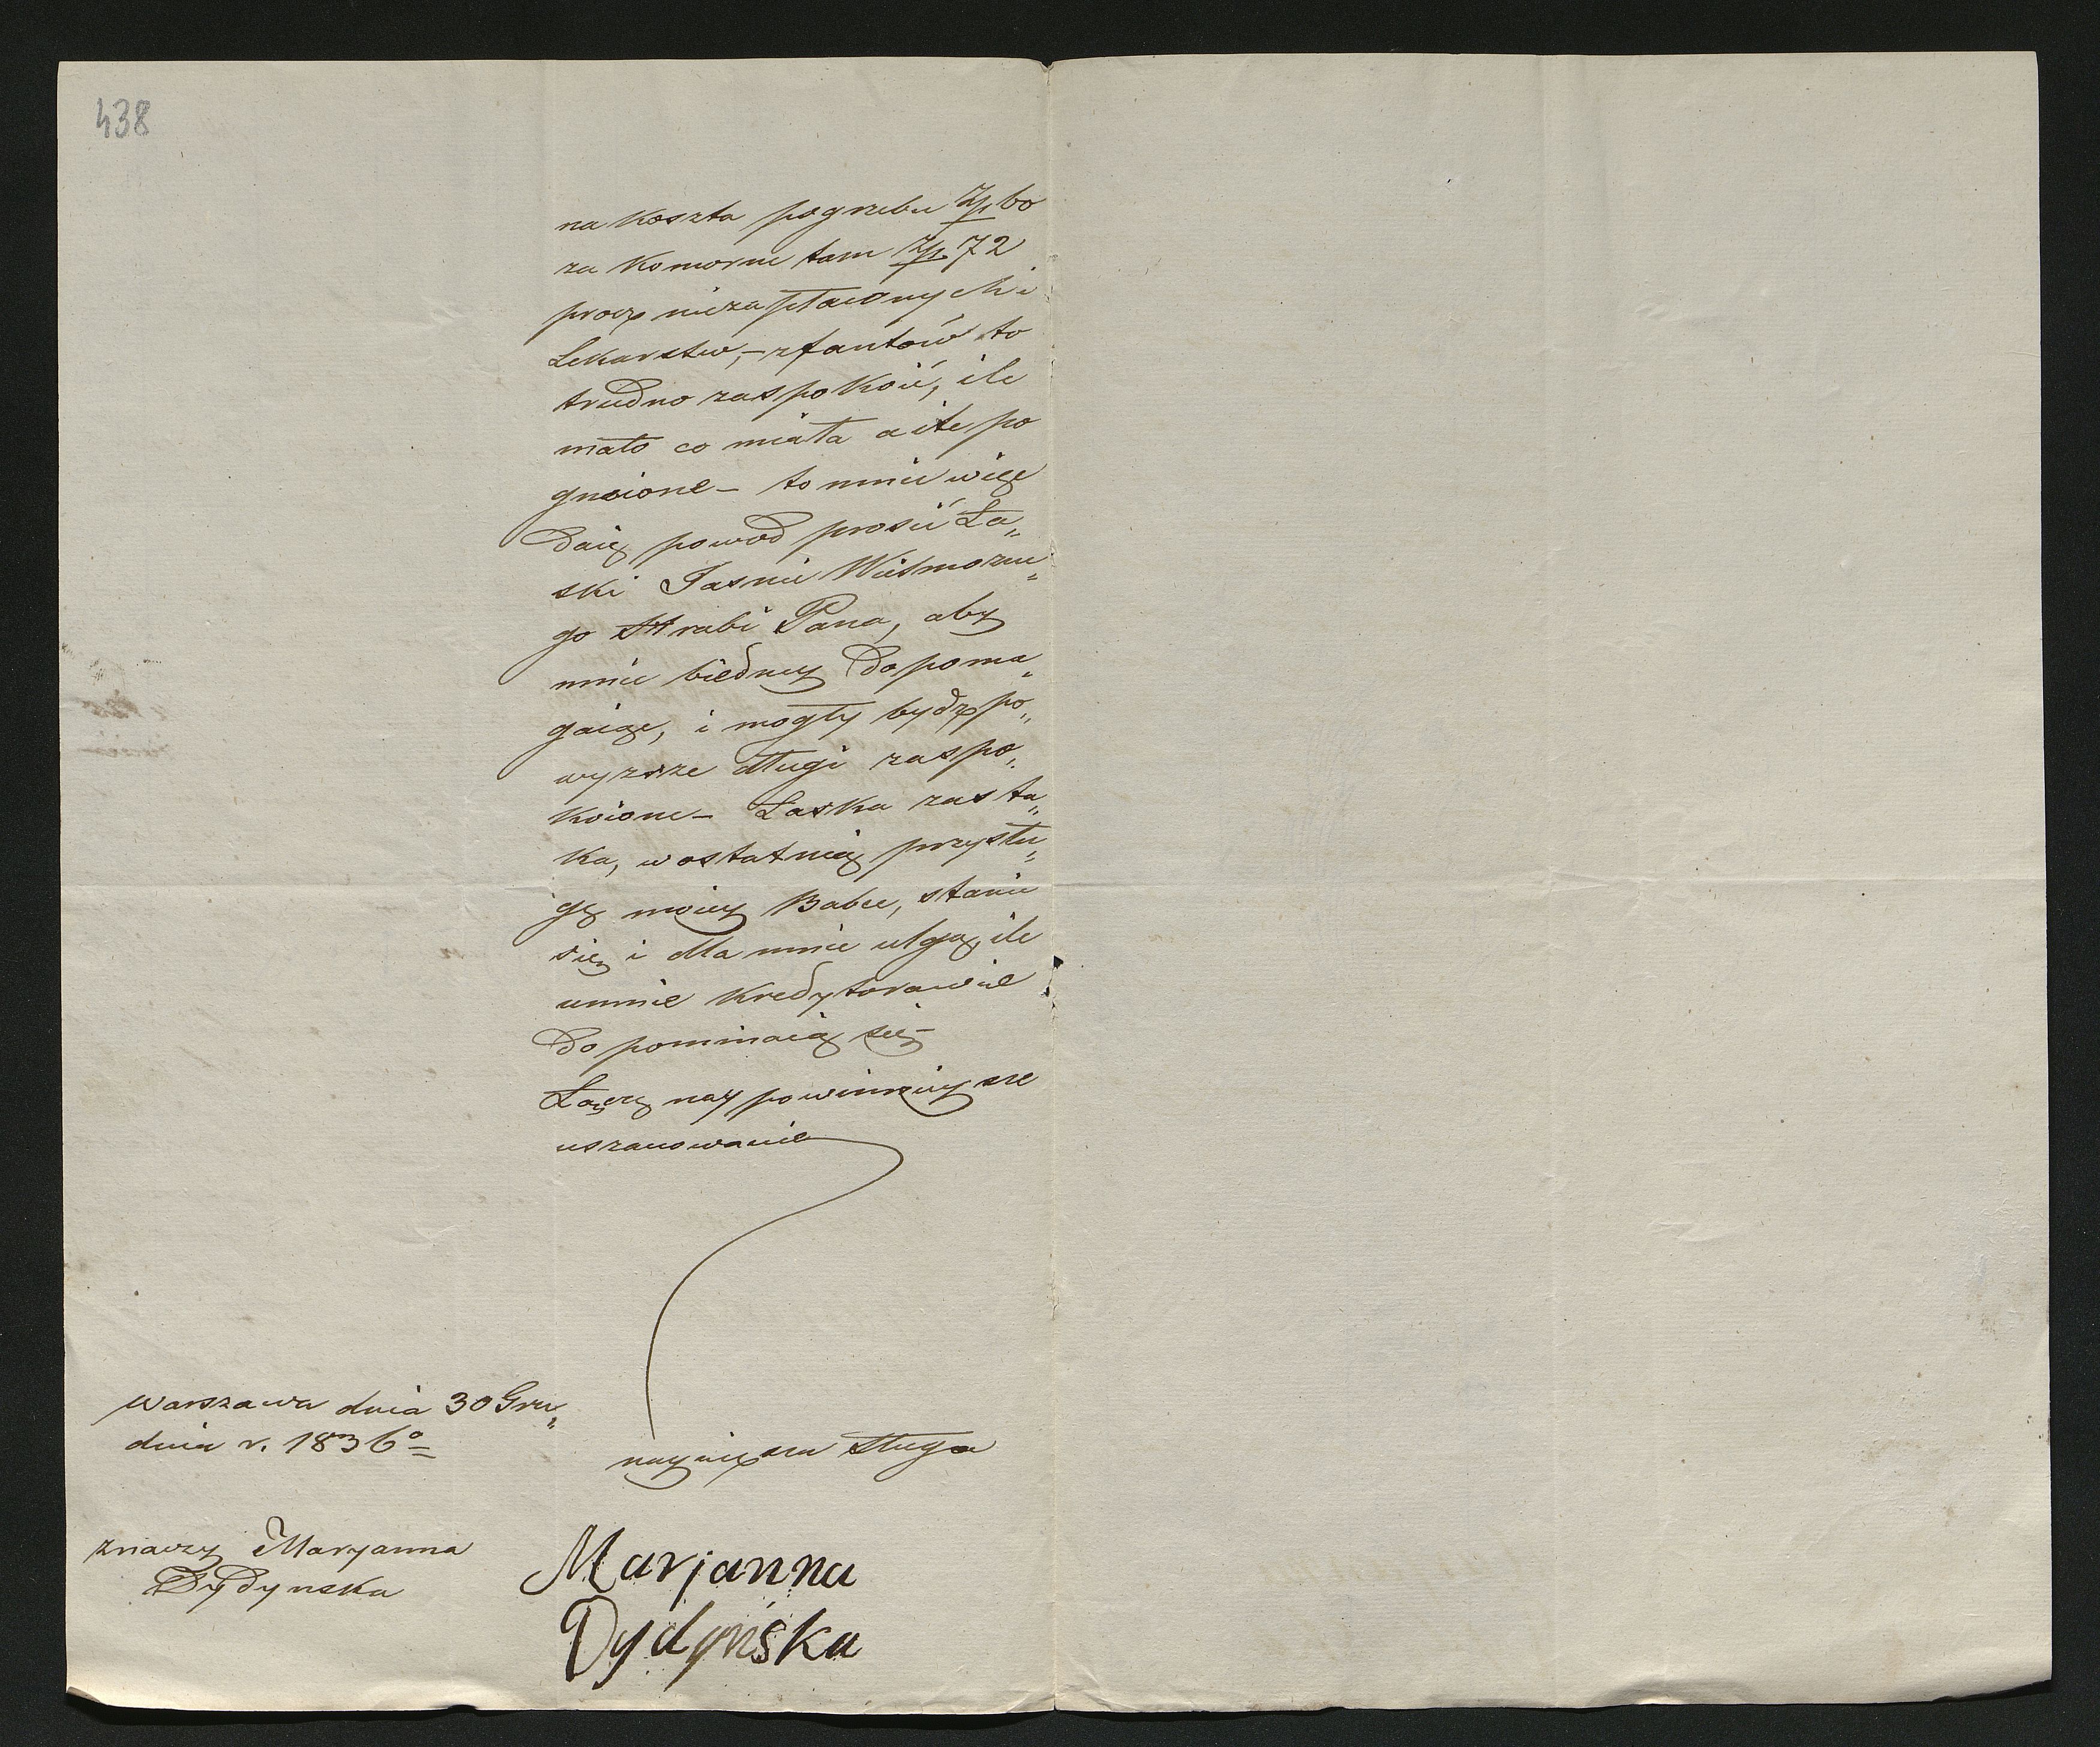 438
na koszta pogrzebu Zp. 60
za komorne tam Zp. 72
procz niezapłaconych i
Lekarstw,- z fantów to
trudno zaspokoić, ile
mało co miała a i te po
gnoione - to mnie więc
daię powod prosić Ła„
ski Jasnie Wielmożne„
go Hrabi Pana, aby
mnie biedney dopoma„
gaiąc, i mogły bydz po„
wyzsze długi zaspo„
koione - Łaska zas ta„
ka, w ostatnią przysłu„
gę moiey Babce, stanie
się i dla mnie ulgą, ile
u mnie kredytorowie
dopominaią się -
Łączę nay powinnieysze
uszanowanie
Warszawa dnia 30 Gru„
dnia r. 1836º
nayniższa sługa
znaczy Maryanna
Dydynska
Marjanna
Dydyńska